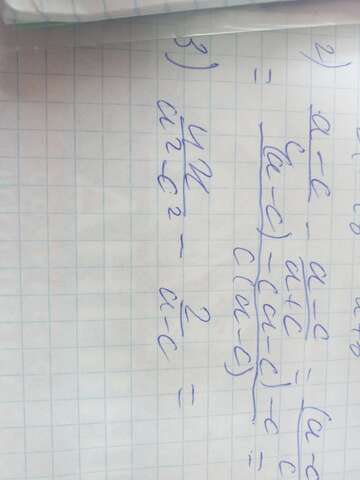 2) (a-c)/c - (a-c)/(a+c) = (a-c
= ((a-c)-c(a-c)-c)/(c(a-c)) =
3) 4x/(a²-c²) - 2/(a-c) =